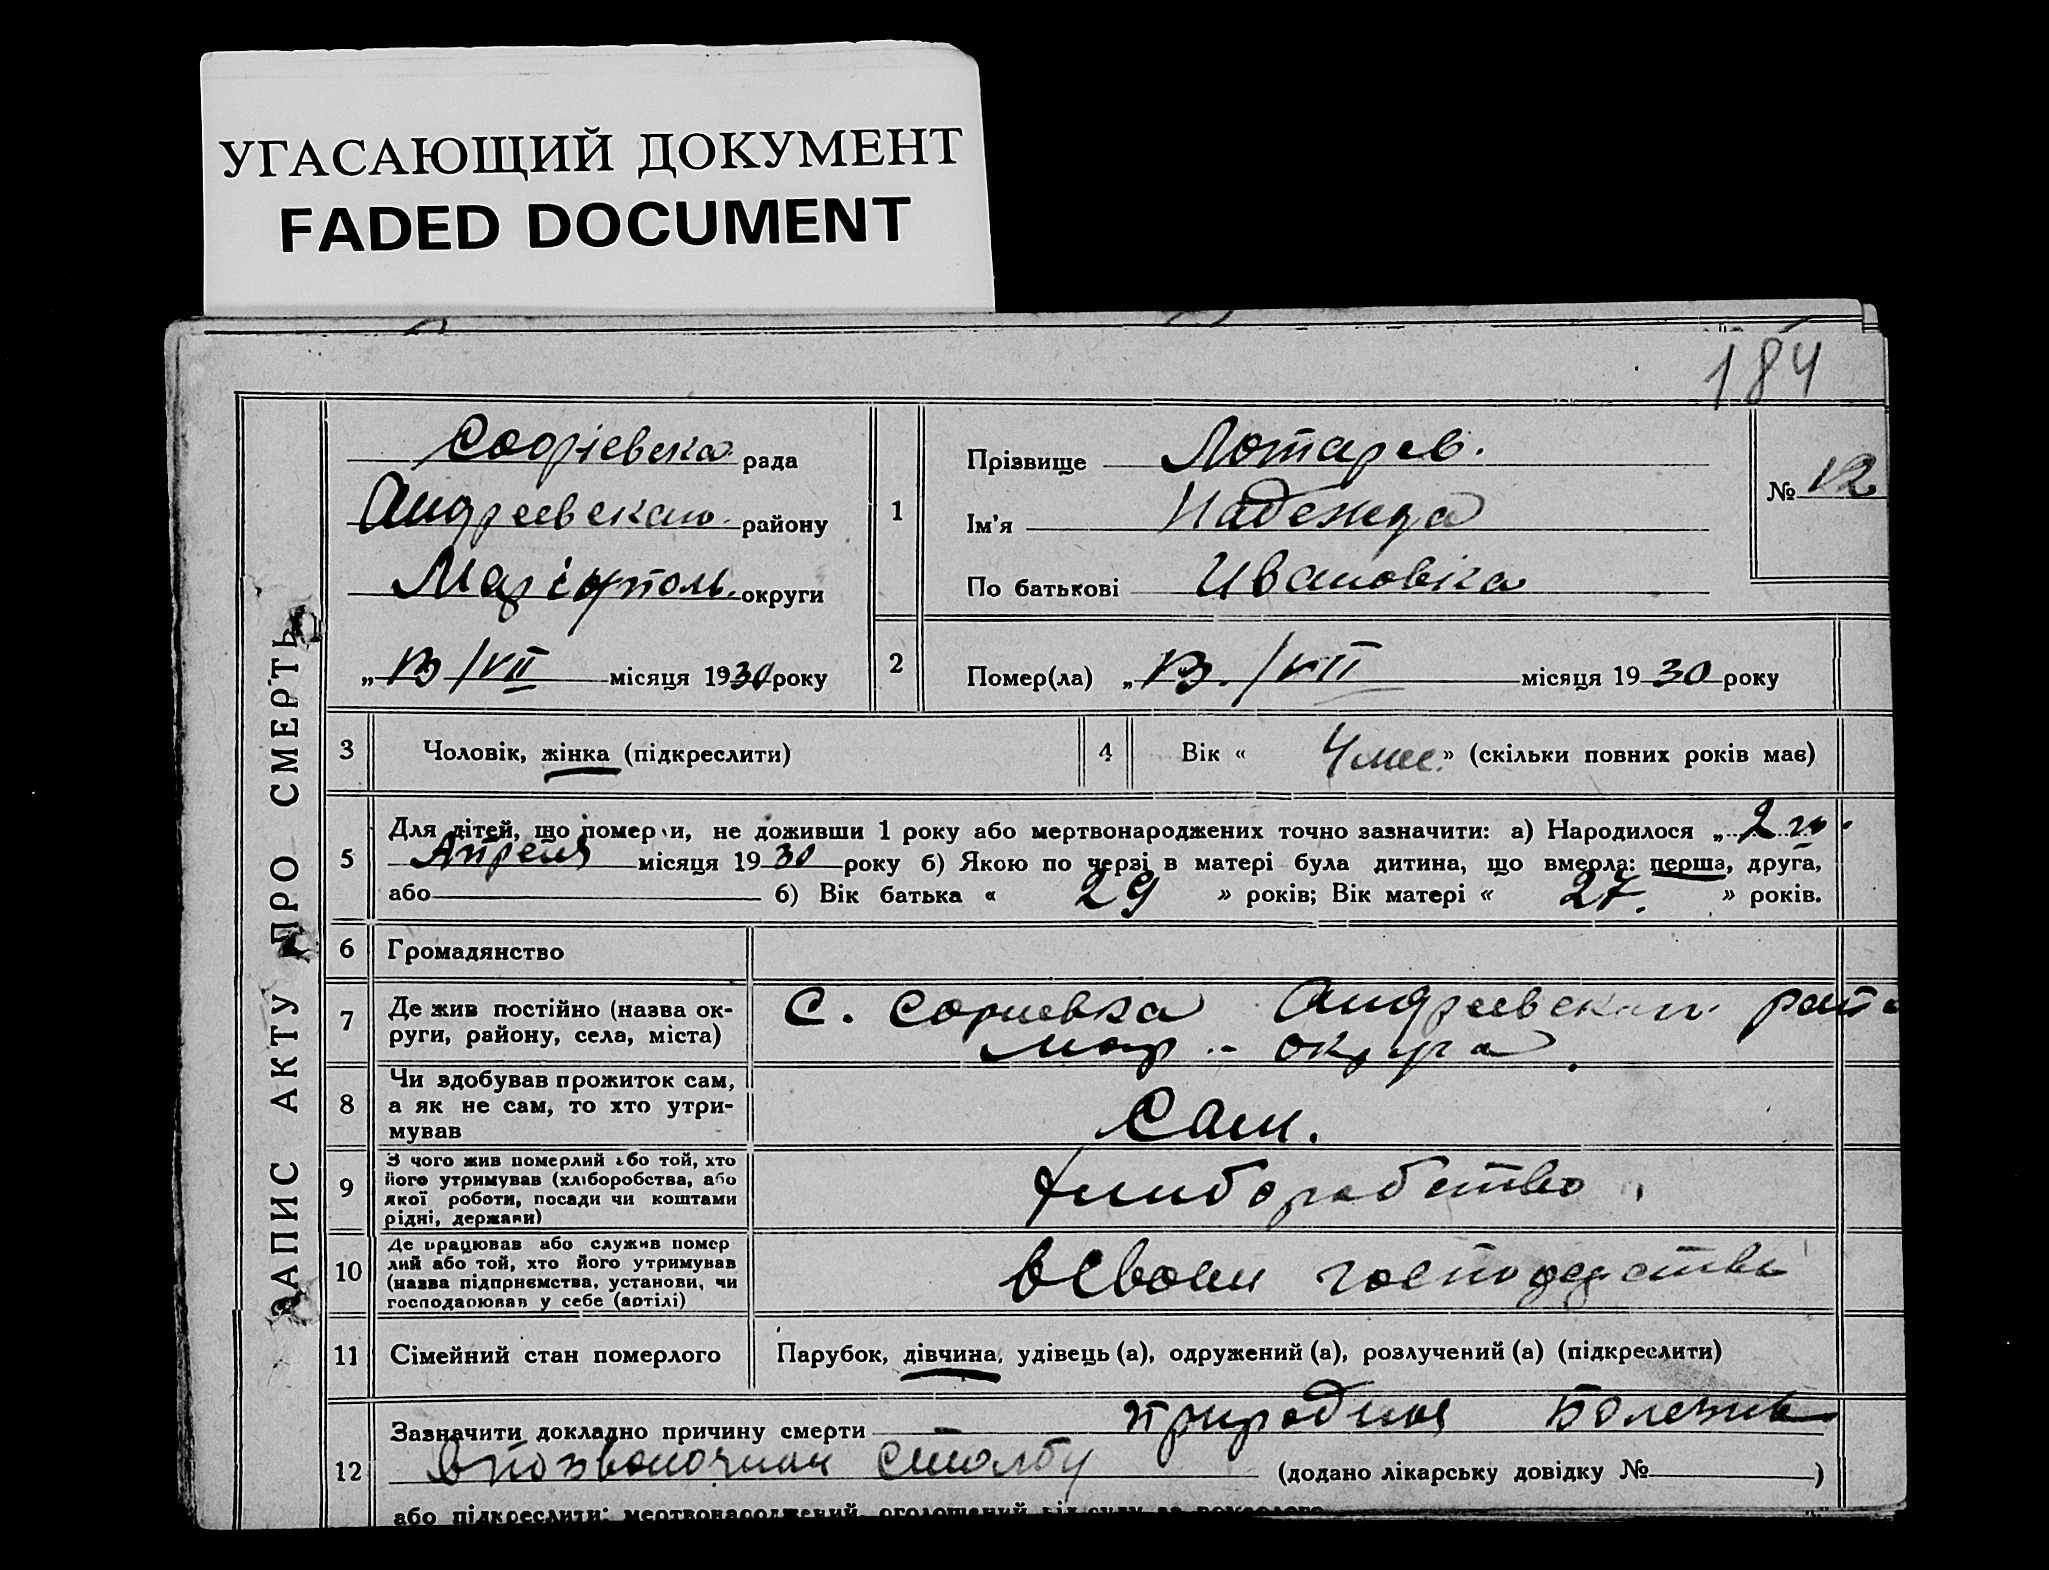 УГАСАЮЩИЙ ДОКУМЕНТ
FADED DOCUMENT
184
ЗАПИС АКТУ ПРО СМЕРТЬ
Софіевска рада
Андреевского району
Маріуполь. округи
„13/VII місяця 1930 року
1
Прізвище Лотарев.
Ім'я Надежда
По батькові Ивановка
№ 12
2
Помер(ла) „13./VII місяця 1930 року
3
Чоловік, жінка (підкреслити)
4
Вік « 4 мес. » (скільки повних років має)
5
Для дітей, що померли, не доживши 1 року або мертвонароджених точно зазначити: а) Народилося „ 2го.
Апреля місяця 1930 року б) Якою по черзі в матері була дитина, що вмерла: перша, друга,
або б) Вік батька « 29 » років; Вік матері « 27. » років.
6
Громадянство
7
Де жив постійно (назва ок-
руги, району, села, міста)
с. Софиевка Андреевского
Мар. округа.
8
Чи здобував прожиток сам,
а як не сам, то хто утри-
мував
Сам.
9
З чого жив померлий або той, хто
його утримував (хліборобства, або
якої роботи, посади чи коштами
рідні, держави)
Хлиборобство
10
Де працював або служив помер
лий або той, хто його утримував
(назва підприємства, установи, чи
господарював у себе (артілі)
В своем господарстве
11
Сімейний стан померлого
Парубок, дівчина, удівець (а), одружений (а), розлучений (а) (підкреслити)
12
Зазначити докладно причину смерти природная Болезнь
в позвоночном столбу (додано лікарську довідку № )
або підкреслити: мертвонароджений, оголошений від суду за померлого